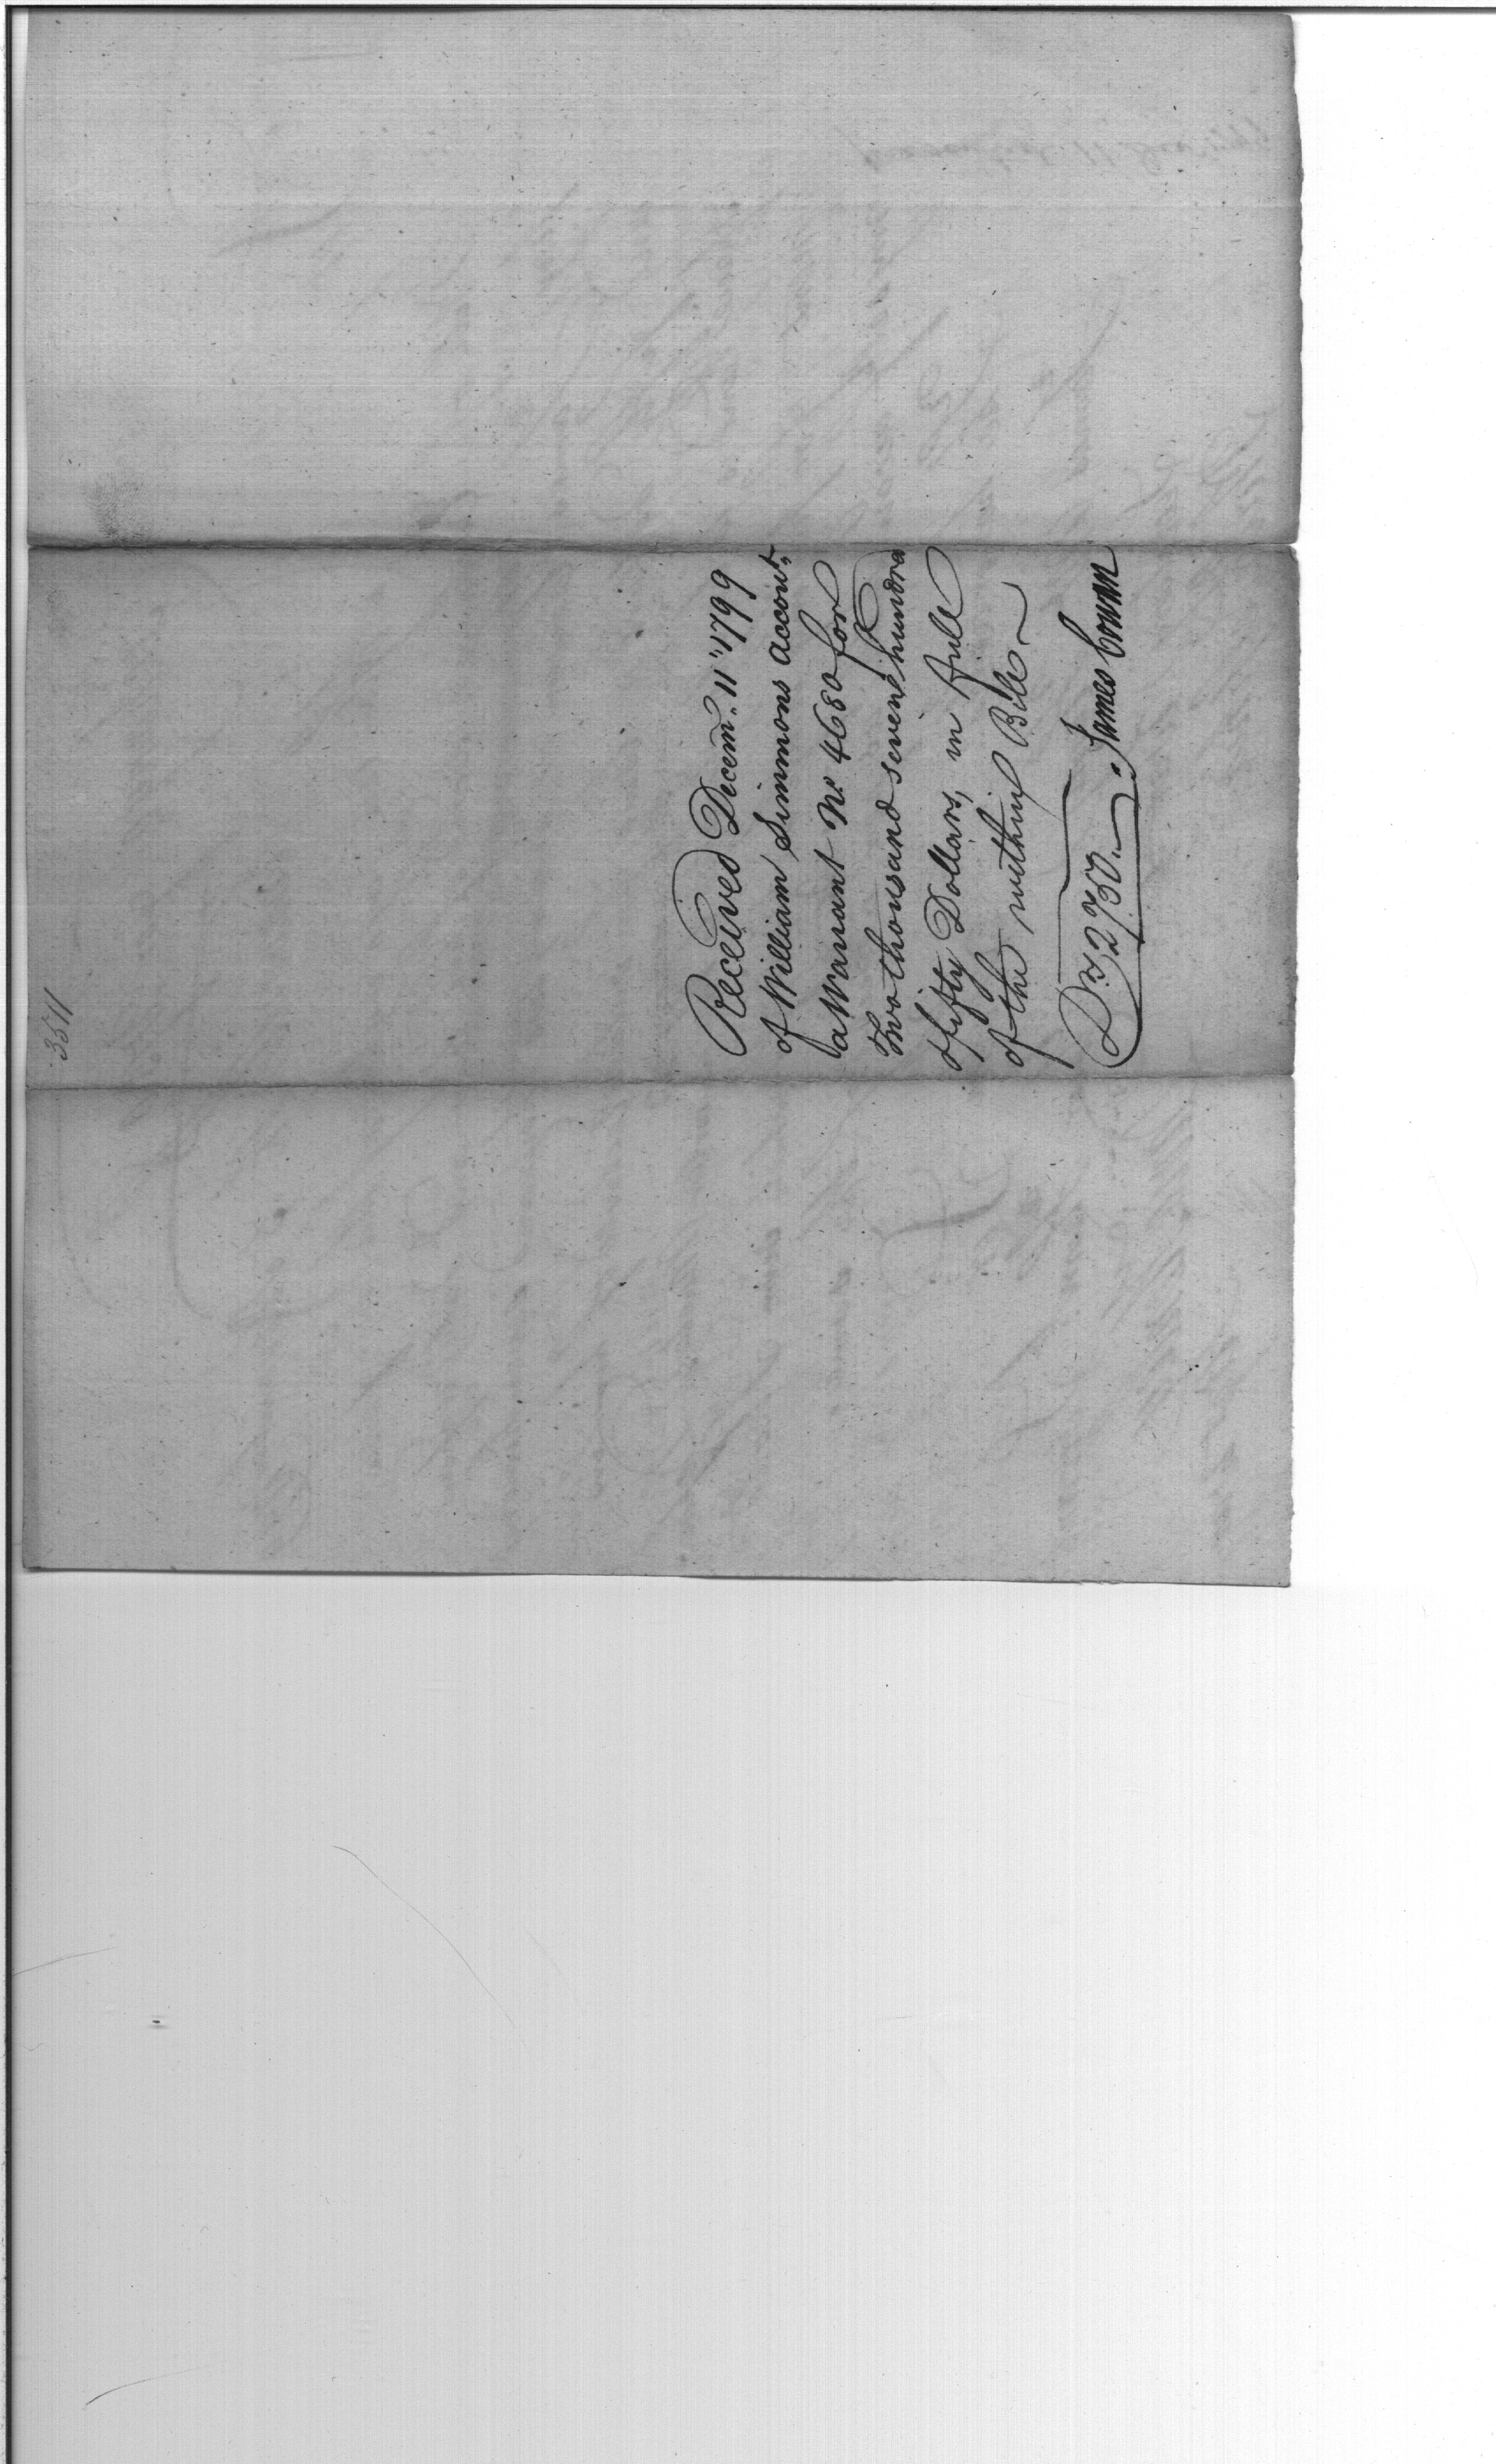 3511
Received Decem. 11" 1799
of William Simmons Accownt
a Warrant No. 4680 for
Two thousand seven hundrd
& fifty Dollars, in full
of the within Bill
Drs 2750.
James Cowan